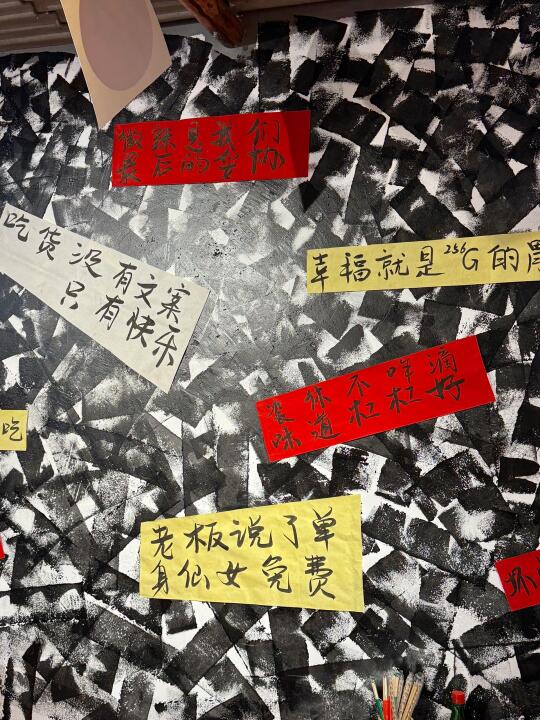 微辣是我们
最后的妥协
吃货没有文案
只有快乐
幸福就是256G的胃
没你不咩滴
味道杠杠好
吃
老板说了单
身仙女免费